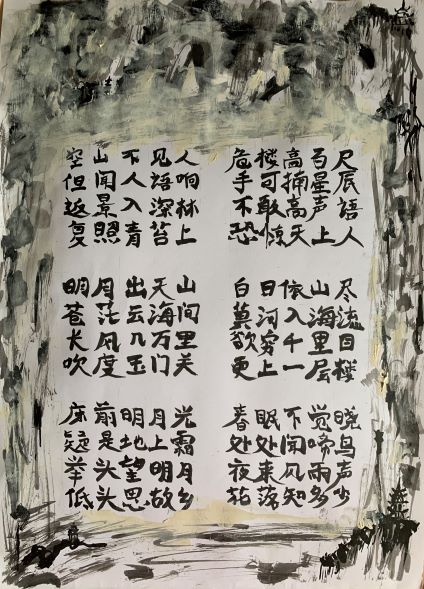 空山不见人
但闻人语响
返景入深林
复照青苔上
危楼高百尺
手可摘星辰
不敢高声语
恐惊天上人
明月出天山
苍茫云海间
长风几万里
吹度玉门关
白日依山尽
黄河入海流
欲穷千里目
更上一层楼
床前明月光
疑是地上霜
举头望明月
低头思故乡
春眠不觉晓
处处闻啼鸟
夜来风雨声
花落知多少